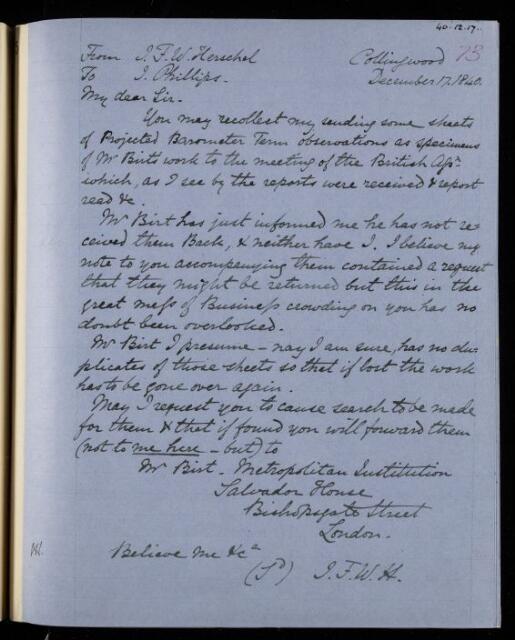 40.12.17.
73
From J.F.W. Herschel Collingwood
To J. Phillips. December 17, 1840.
My dear Sir.
You may recollect my sending some sheets
of Projected Barometer Term observations as specimens
of Mr Birt's work to the meeting of the British Assn.
which, as I see by the reports were received & report
read &c.
Mr Birt has just informed me he has not re-
ceived them Back, & neither have I. I believe my
note to you accompanying them contained a request
that they might be returned but this in the
great mess of Business crowding on you has no
doubt been overlooked.
Mr Birt I presume – nay I am sure, has no du-
plicates of those sheets so that if lost the work
has to be gone over again.
May I request you to cause search to be made
for them & that if found you will forward them
(not to me here – but) to
Mr Birt. Metropolitan Institution
Salvador House
Bishopsgate Street
London.
Believe me &ca
(Sd) J.F.W.H.